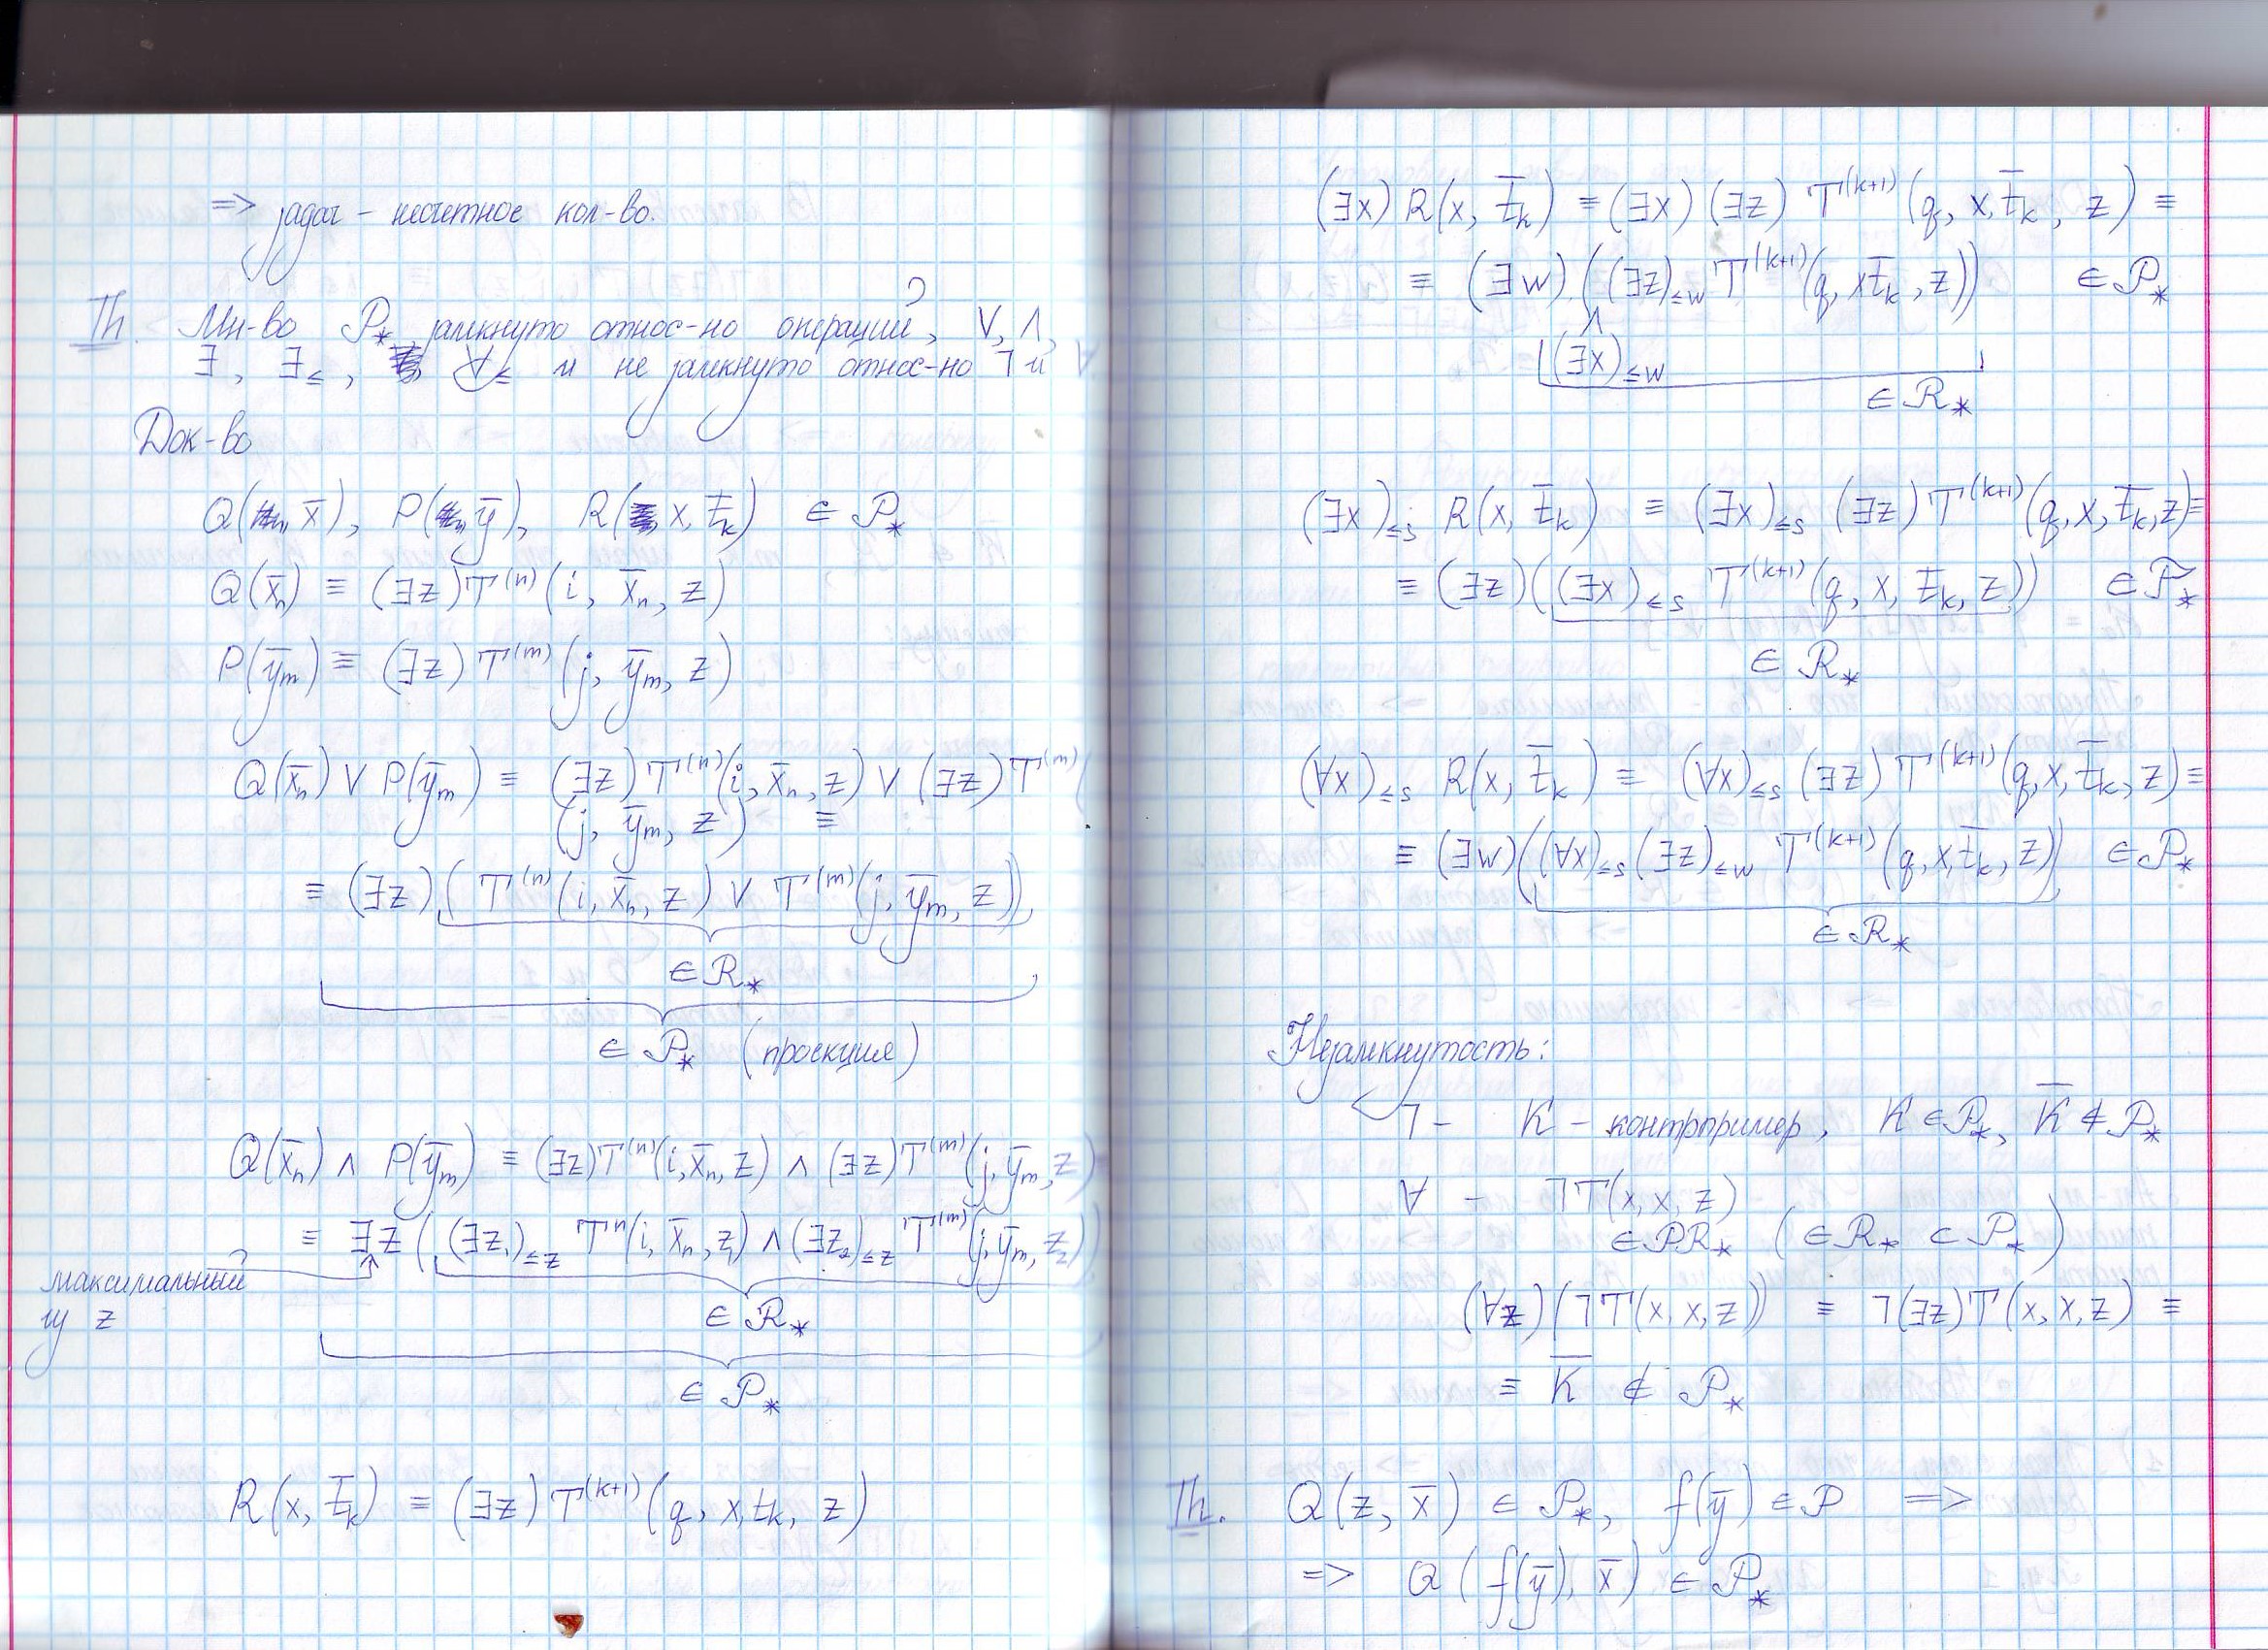 => задач - несчетное кол-во.
Th. Мн-во P* замкнуто относ-но операций, ∨, ∧,
∃, ∃≤, ∀≤ и не замкнуто относ-но ¬ и ∀.
Док-во
Q(x̄), P(ȳ), R(x, t̄k) ∈ P*
Q(x̄n) ≡ (∃z)T⁽ⁿ⁾(i, x̄n, z)
P(ȳm) ≡ (∃z)T⁽ᵐ⁾(j, ȳm, z)
Q(x̄n) ∨ P(ȳm) ≡ (∃z)T⁽ⁿ⁾(i, x̄n, z) ∨ (∃z)T⁽ᵐ⁾(
(j, ȳm, z) ≡
≡ (∃z)(T⁽ⁿ⁾(i, x̄n, z) ∨ T⁽ᵐ⁾(j, ȳm, z))
∈ R*
∈ P* (проекция)
Q(x̄n) ∧ P(ȳm) ≡ (∃z)T⁽ⁿ⁾(i, x̄n, z) ∧ (∃z)T⁽ᵐ⁾(j, ȳm, z)
≡ ∃z((∃z₁)≤z Tⁿ(i, x̄n, z₁) ∧ (∃z₂)≤z T⁽ᵐ⁾(j, ȳm, z₂))
максимальный
из z
∈ R*
∈ P*
R(x, t̄k) ≡ (∃z)T⁽ᵏ⁺¹⁾(q, x, tk, z)
(∃x)R(x, t̄k) ≡ (∃x)(∃z)T⁽ᵏ⁺¹⁾(q, x, t̄k, z) ≡
≡ (∃w)((∃z)≤w T⁽ᵏ⁺¹⁾(q, x t̄k, z)) ∈ P*
(∃x)≤w
∈ R*
(∃x)≤s R(x, t̄k) ≡ (∃x)≤s (∃z)T⁽ᵏ⁺¹⁾(q, x, t̄k, z) ≡
≡ (∃z)((∃x)≤s T⁽ᵏ⁺¹⁾(q, x, t̄k, z)) ∈ P*
∈ R*
(∀x)≤s R(x, t̄k) ≡ (∀x)≤s (∃z)T⁽ᵏ⁺¹⁾(q, x, t̄k, z) ≡
≡ (∃w)((∀x)≤s (∃z)≤w T⁽ᵏ⁺¹⁾(q, x, t̄k, z)) ∈ P*
∈ R*
Незамкнутость:
¬ - K - контрпример, K ∈ P*, K̄ ∉ P*
∀ - ¬T(x, x, z)
∈ PR* (∈ R* ⊂ P*)
(∀z)(¬T(x, x, z)) ≡ ¬(∃z)T(x, x, z) ≡
≡ K̄ ∉ P*
Th. Q(z, x̄) ∈ P*, f(ȳ) ∈ P =>
=> Q(f(ȳ), x̄) ∈ P*